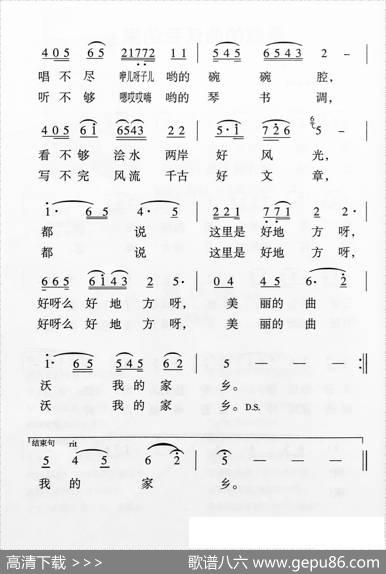 405 65 21772 11 | 545 6543 2 –
唱不尽 咿儿呀子儿 哟的 碗碗腔,
听不够 嗯哎哎嗨 哟的 琴书调,
405 61 6543 22 | 5·1 726 5 –
看不够 浍水 两岸 好风光,
写不完 风流 千古 好文章,
1· 65 4· 5 | 221 771 2 2·
都说 这里是好地方呀,
都说 这里是好地方呀,
665 6143 2 5· | 04 45 6· 2
好呀么好地方呀, 美丽的曲
好呀么好地方呀, 美丽的曲
1· 65 545 62 | 5 — — — :||
沃 我的家 乡。
沃 我的家 乡。D.S.
结束句 rit
5 4 5 6 2 | 5 — — — ||
我的家乡。
高清下载 >>>
歌谱八六 www.gepu86.com